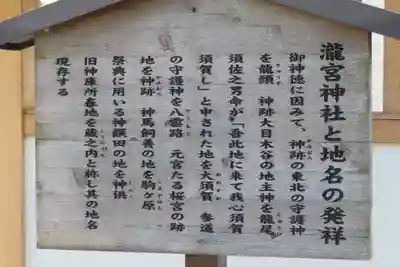 瀧宮神社と地名の発祥
御神徳に因みて、神跡の東北の守護神
を龍頭　神跡大目木谷の地主神を龍尾
須佐之男命が「吾此地に来て我心須賀
須賀し」と申された地を大須賀　参道
の守護神を八重路　元宮たる桜宮の跡
地を神跡　神馬飼養の地を駒ヶ原
祭典に用いる神饌田の地を神供
旧神庫所在地を蔵之内と称し其の地名
現存する